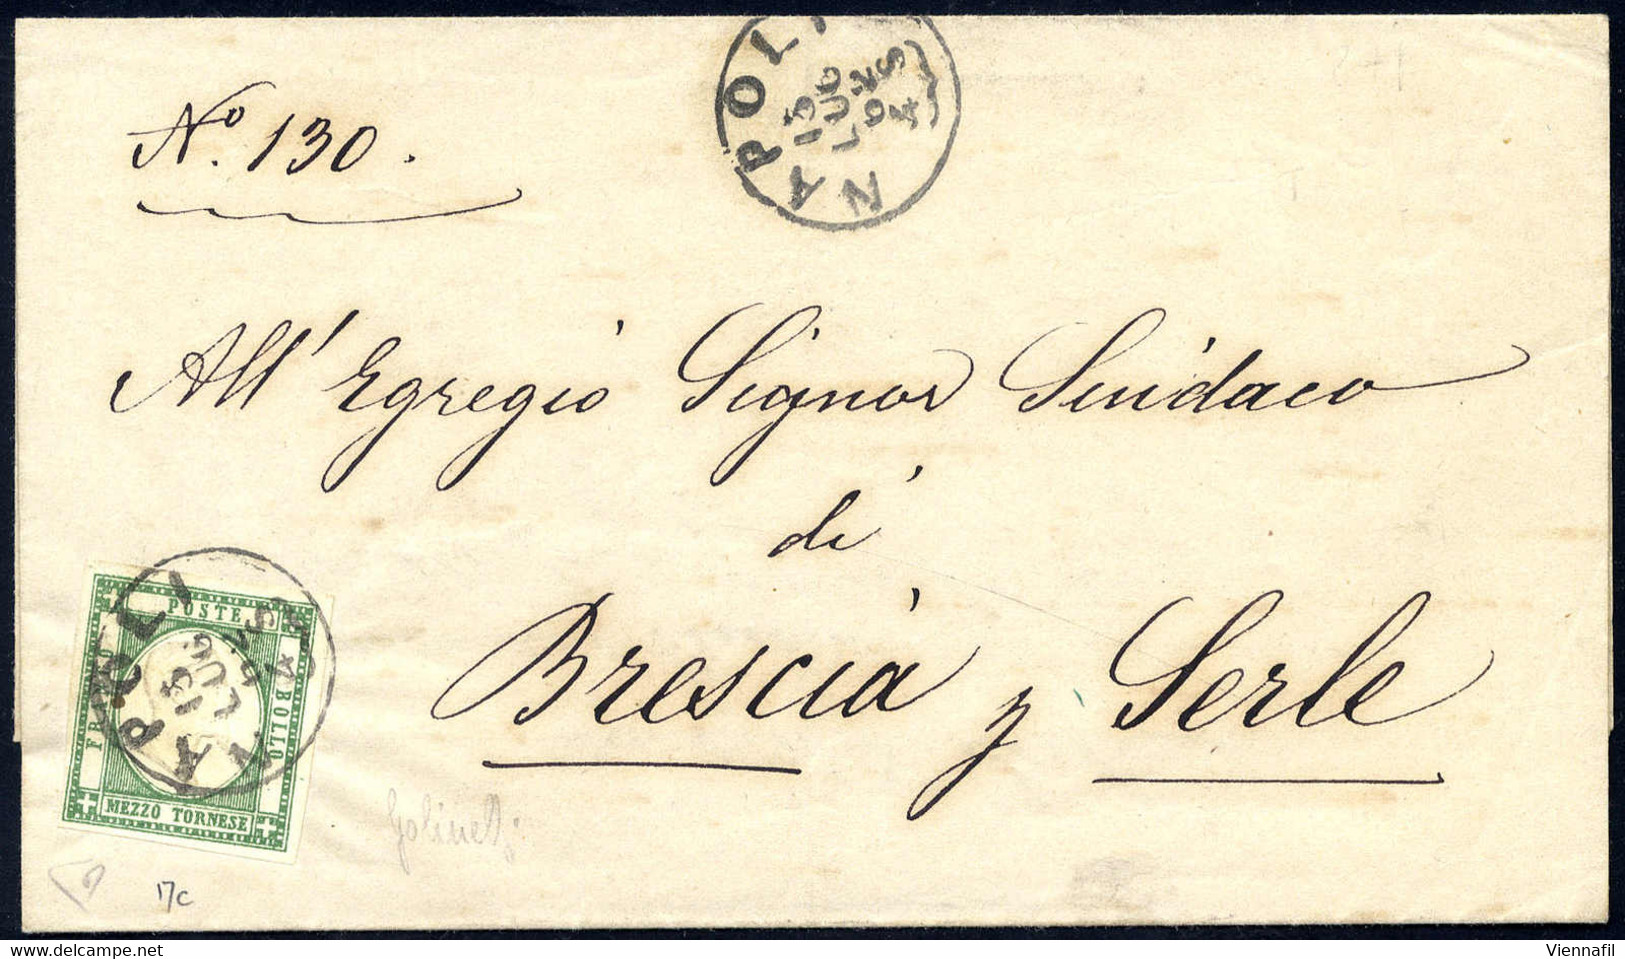 No. 130.
NAPOLI
15
LUG
62
4 S
All' Egregio Signor Sindaco
di
Brescia y Serle
FRANCO
POSTE
BOLLO
MEZZO TORNESE
NAPOLI
15
LUG.
17c
Viennafil